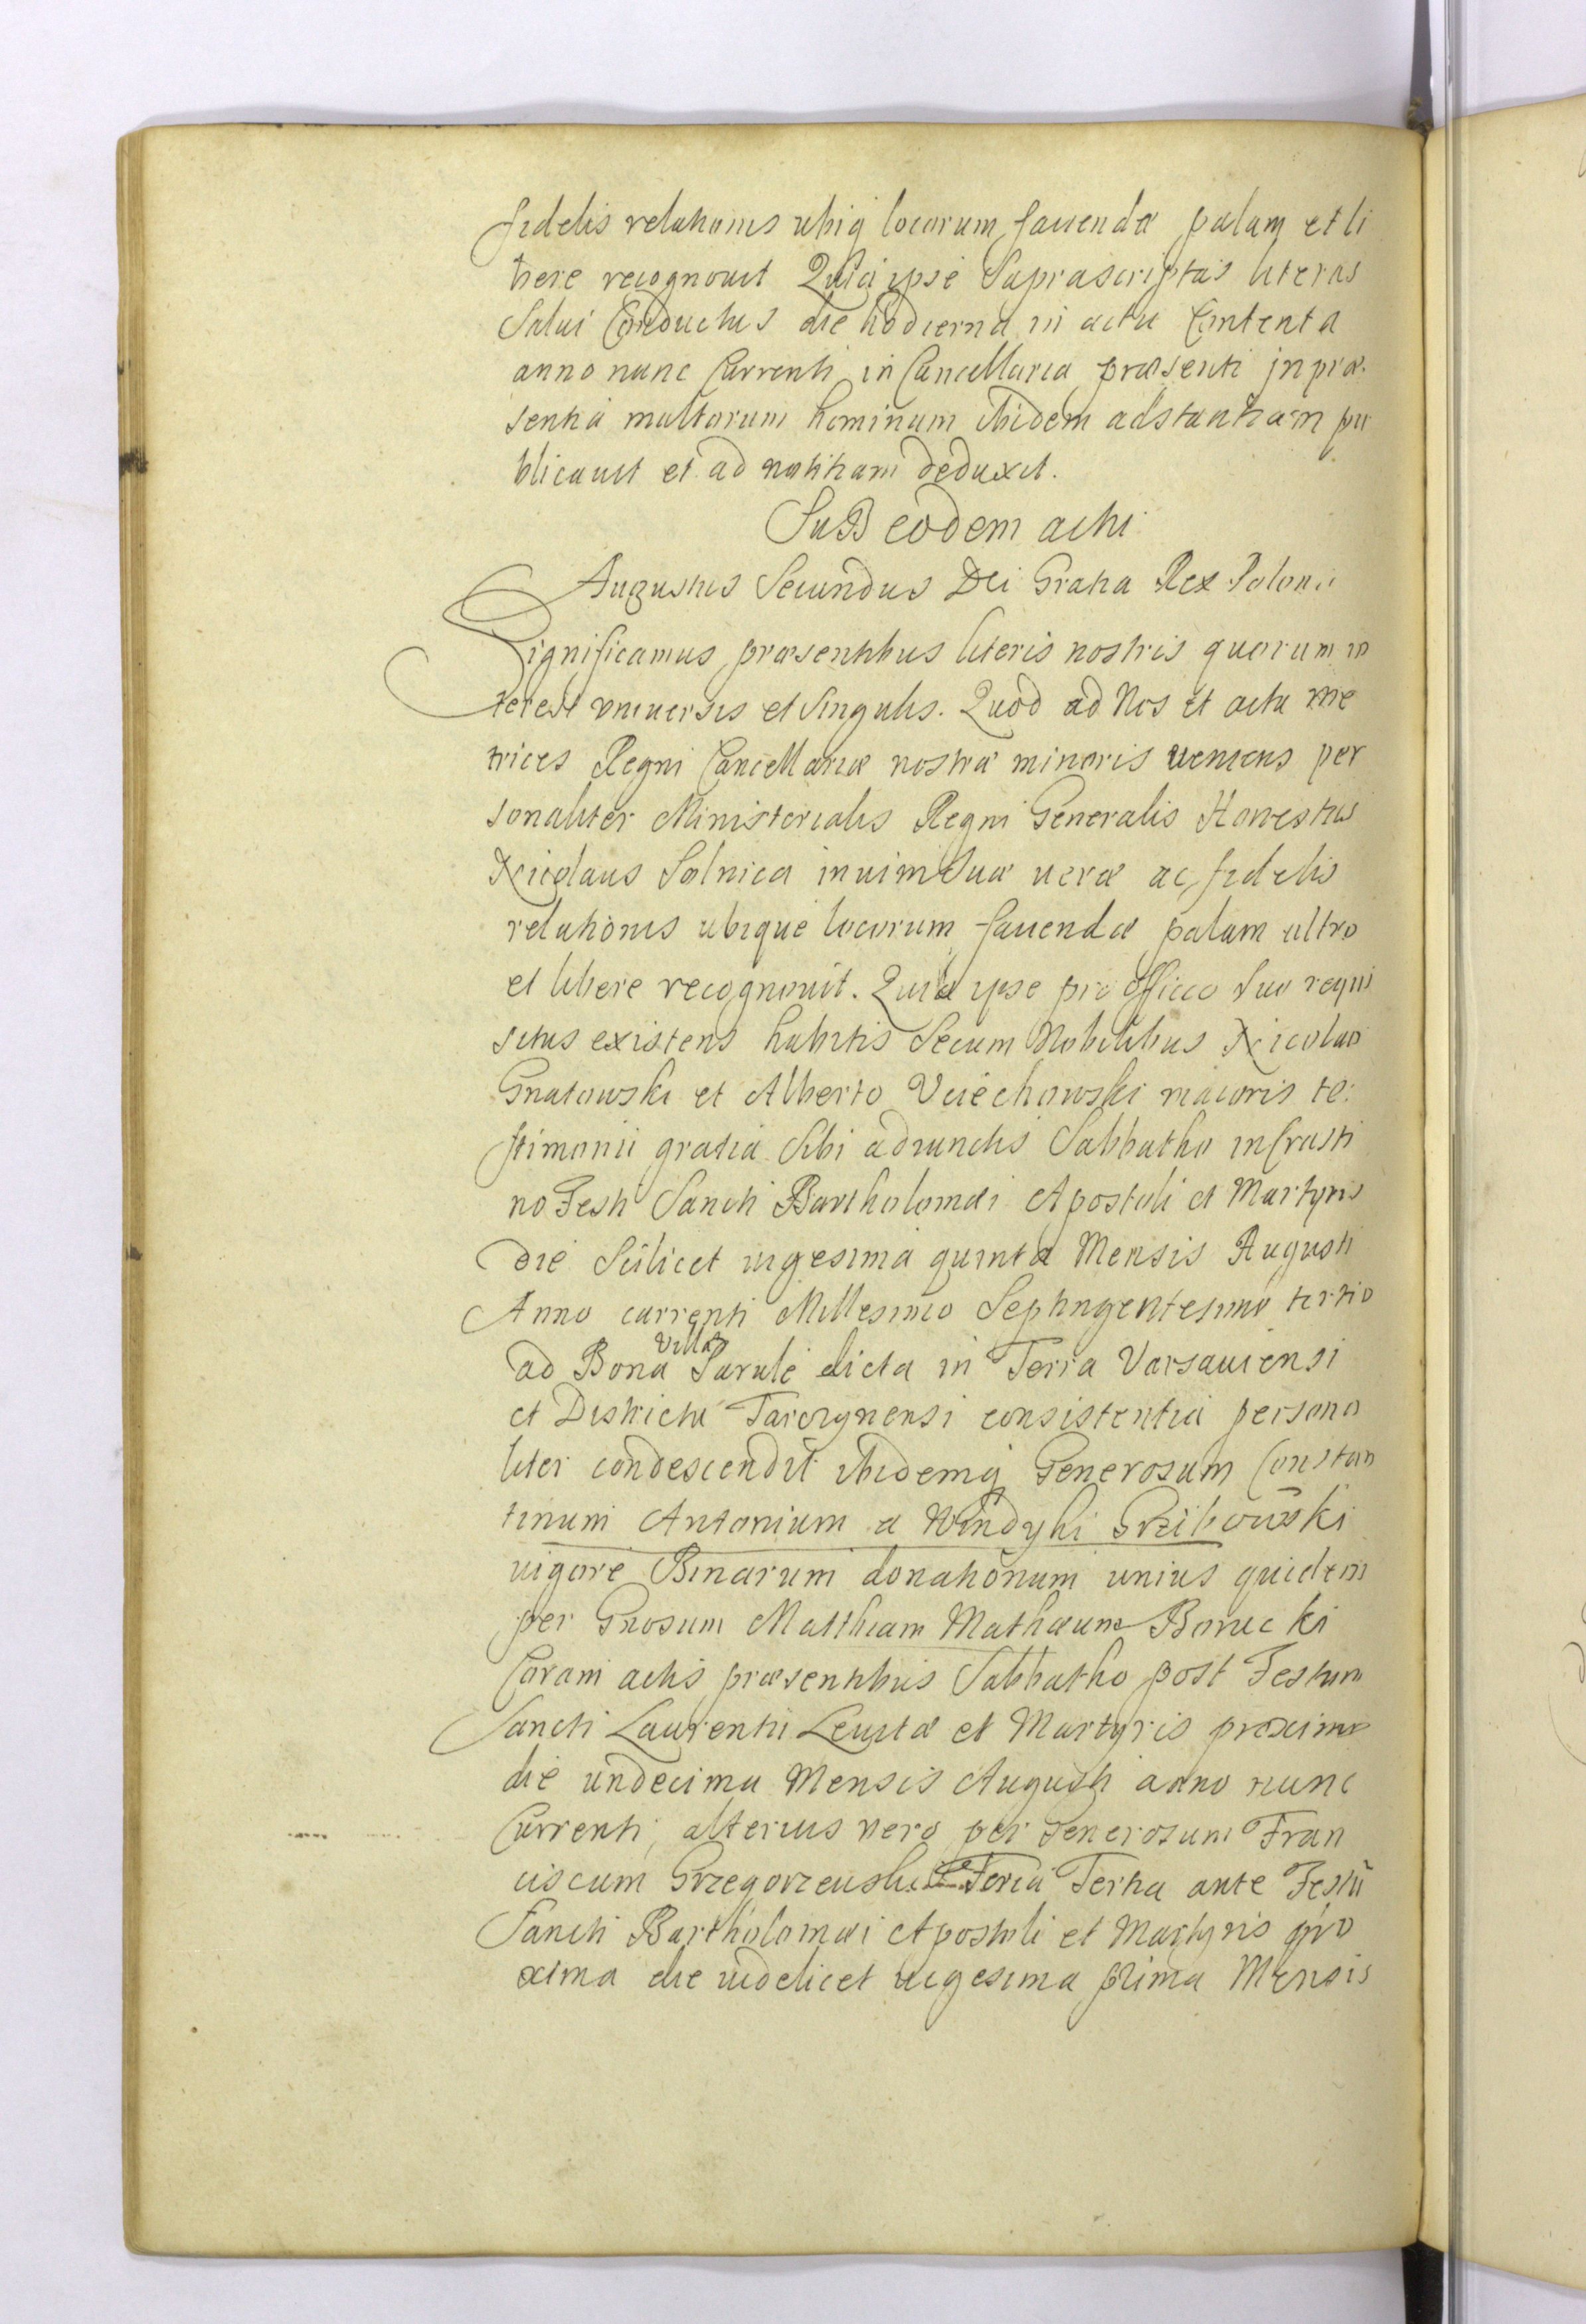 fidelis relationis ubiq locorum fauendæ palam et li
bere recognouit Quia ipse Suprascriptas literas
Salui Conductus die hodierna in acta Contenta
anno nunc Currenti in Cancellaria præsenti in præ-
sentia multorum hominum ibidem adstantium pu
blicauit et ad notitiam deduxit.
SuB eodem actu
Augustus Secundus Dei Gratia Rex Poloni
Significamus præsentibus literis nostris quorum in
terest vniuersis et Singulis. Quod ad Nos et acta me
trices Regni Cancellariæ nostræ minoris ueniens per
sonaliter Ministerialis Regni Generalis Honestus
Nicolaus Solnica in uim Suæ ueræ ac fidelis
relationis ubique locorum fauendæ palam ultro
et libere recognouit. Quia ipse pro officio Suo requi
situs existens habitis Secum Nobilibus Nicolao
Gnatowski et Alberto Vciechowski maioris te-
stimonii gratia Sibi adiunctis Sabbatho in Crasti
no Festi Sancti Bartholomæi Apostoli et Martyris
die Scilicet uigesima quinta Mensis Augusti
Anno currenti Millesimo Septingentesimo tertio
ad Bona Villa Parule dicta in Terra Varsauiensi
et Districtu Tarczynensi consistentia persona
liter condescendit ibidemq Generosum Constan
tinum Antonium a Windyki Grzibowski
uigore Binarum donationum unius quidem
per Gnosum Matthiam Mathæum Borucki
Coram actis præsentibus Sabbatho post Festum
Sancti Laurentii Leuitæ et Martyris proximo
die undecima Mensis Augusti anno nunc
Currenti, alterius vero per Generosum Fran
ciscum Grzegorzewski Feria Tertia ante Festū
Sancti Bartholomæi Apostoli et Martyris pro
xima die uidelicet uigesima prima Mensis